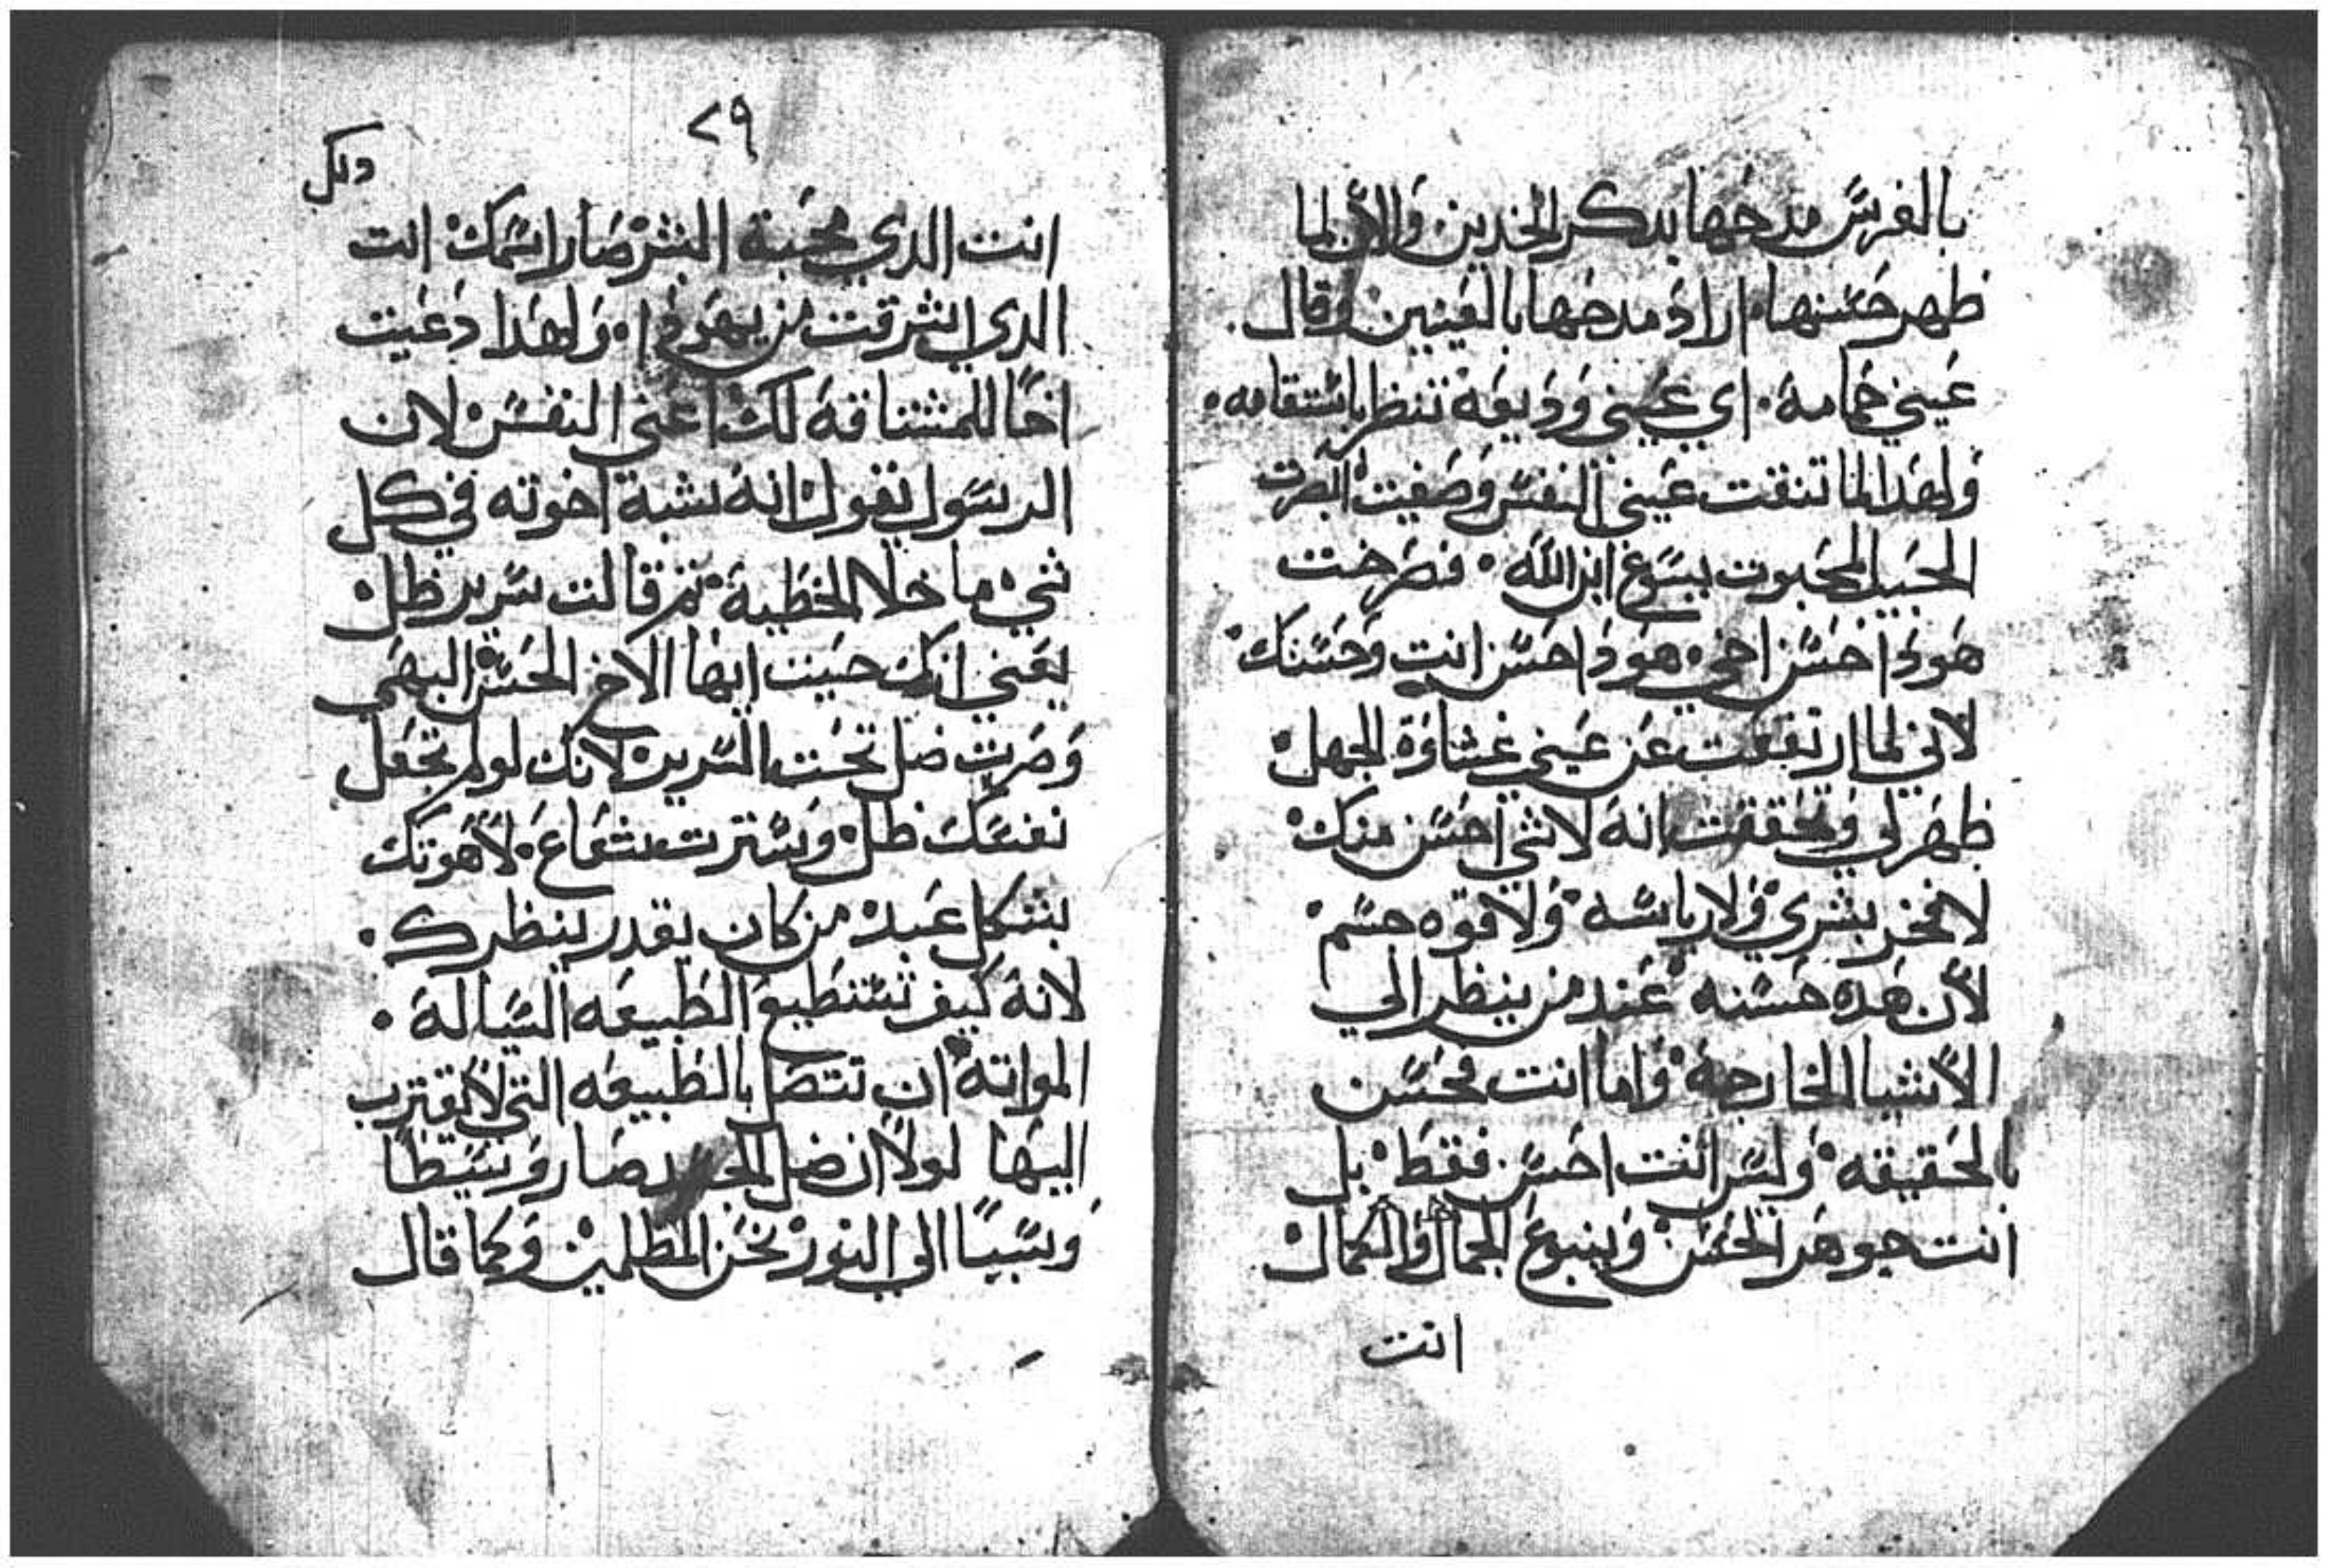 بالفرس مدحها بدكر الخدين والان لما
ظهر حسنها اراد مدحها بالعينين وقال.
عيني حمامة. اي عيني وديعة تنظر باستقامه.
ولهدا لما تنقت عيني النفس وصفيت ابصرت
الحبيب المحبوب يسوع ابن الله. فصرخت
هودا حسن اخي هودا حسن انت وحسنك
لاني لما ارتفعت عن عيني غشاوة الجهل
ظهر لي وتحققت انه لاشي احسن منك
لا فخر بشري ولا رياسه ولا قوه جسم
لان هده حسنه عند من ينظر الي
الاشيا الخارجة واما انت فحسن
بالحقيقه وليس انت احسن فقط بل
انت جوهر الحسن وينبوع الجمال والكمال
انت
٢٩
انت الدي محبة البشر صار اسمك انت
الدي اشرقت من يهودا. ولهدا دعيت
اخا للمشتاقة لك اعني النفس لان
الرسول يقول انه يشبة اخوته في كل
شي ما خلا الخطية ثم قالت سرير ظل
يعني انك حيت ايها الاخ الحسن البهي
وصرت ضل تحت السرير لانك لو لم تجعل
نفسك ظل وسترت شعاع لاهوتك
بشكل عبد من كان يقدر ينظرك.
لانة كيف تستطيع الطبيعه السيالة.
المواتة ان تتصل بالطبيعه التي لا يقترب
اليها لولا ان ضل الجسد صار وسيطا
وسببا الي النور نحن المظلمين وكما قال